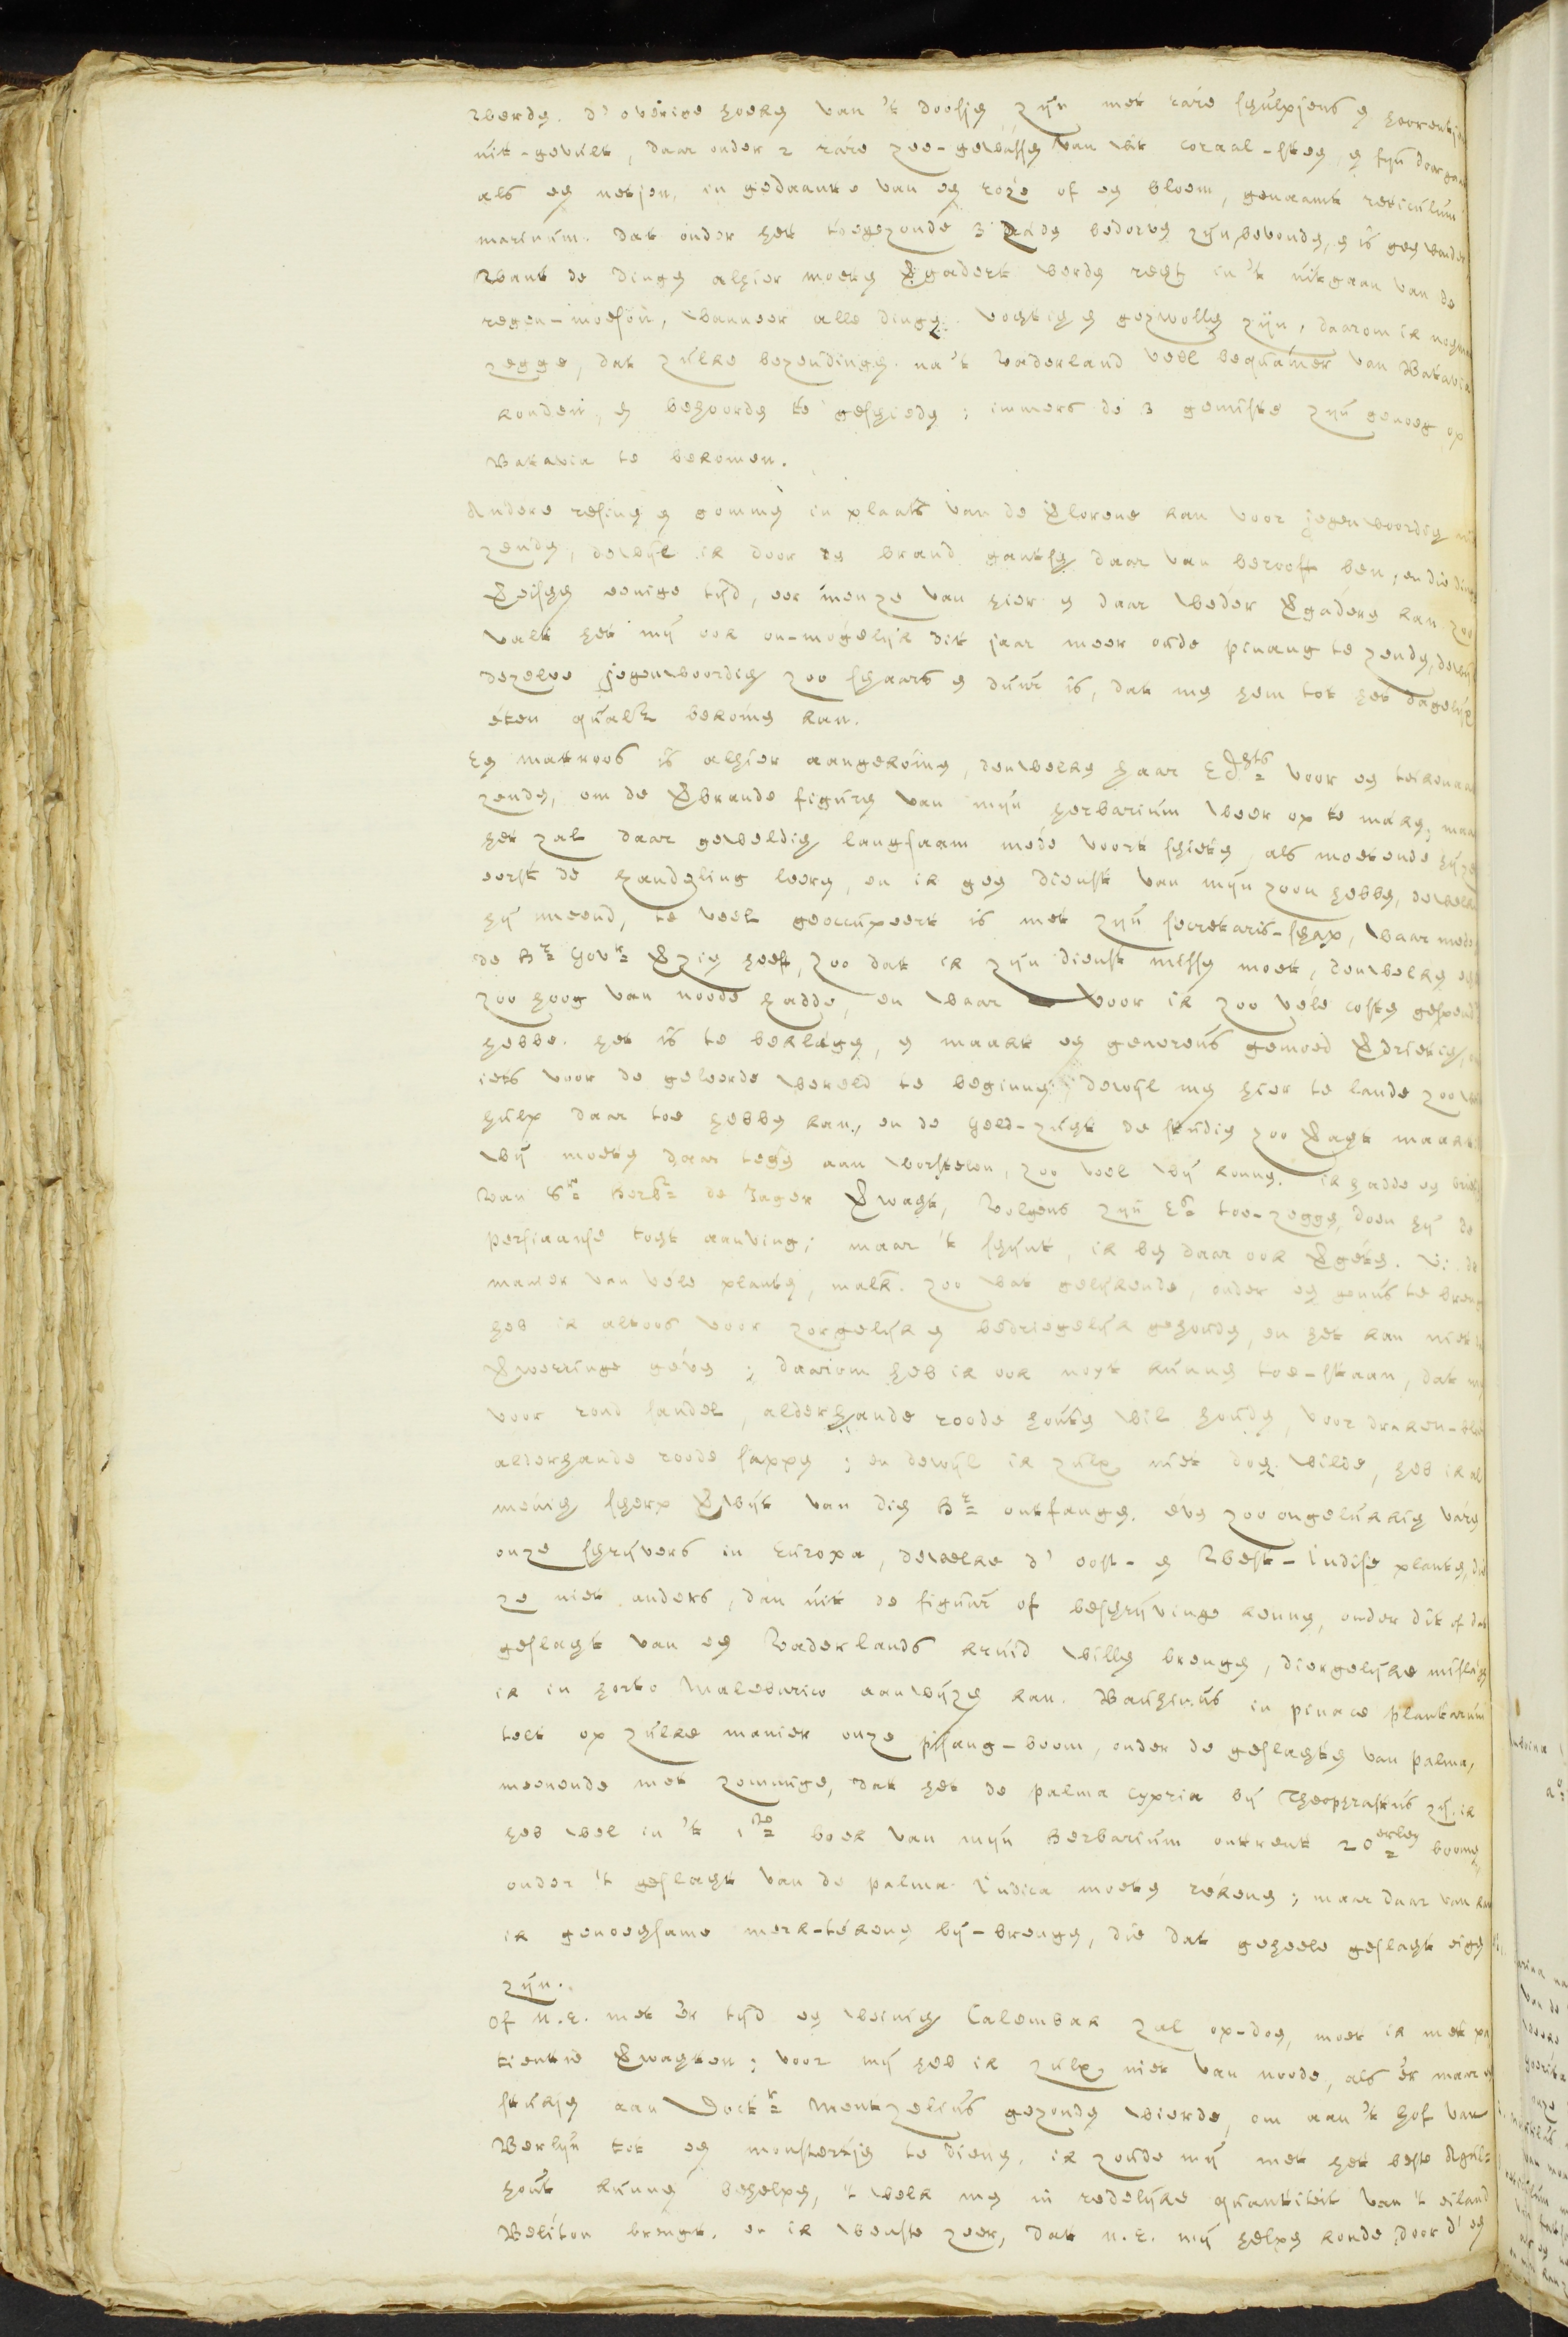 werden. d' overige hoeken van 't doosjen zijn met rare schulpjens en hoorentjens
uit-gevult, daar onder 2 rare zee-gewassen van wit coraal-steen, en fijn door gaan
als een netjen, in gedaante van een roze of een bloem, genaamt reticulum
marinum. dat onder het toegezonde 3 zaden bedorven zijn bevonden, en is geen wonder
Want de dingen alhier moeten vergadert werden regt in 't uitgaan van de
regen-mouson, wanneer alle dingen vochtig en gezwollen zijn, daarom ik nogmaal
zegge, dat zulke bezendingen na 't Vaderland veel bequamer van Batavia
konden, en behoorden te geschieden; immers de 3 gemiste zijn genoeg op
Batavia te bekomen.
Andere resinen en gommen in plaats van de verlorene kan voor jegenwoordig niet
zenden, dewijl ik door den brand gantsch daar van berooft ben, en die dingen
vereischen eenige tijd, eer men ze van hier en daar weder vergaderen kan. zoo
valt het mij ook on-mogelijk dit jaar meer oude pinang te zenden, dewijl
dezelve jegenwoordig zoo schaars en duur is, dat men hem tot het dagelijx
eten qualijk bekomen kan.
Een matroos is alhier aangekomen, denwelken haar Edhts voor een teikenaar
zenden, om de verbrande figuren van mijn herbarium weer op te maken; maar
het zal daar geweldig langsaam mede voort schieten, als moetende hij ze
eerst de handeling leeren, en ik geen dienst van mijn zoon hebben, dewelke
hij meend, te veel geoccupeert is met zijn secretaris-schap, waar mede
de Hr Govr verzien heeft, zoo dat ik zijn dienst missen moet, denwelken ik
zoo hoog van noode hadde, en waar voor ik zoo vele costen gespendeert
hebbe. het is te beklagen, en maakt een genereus gemoed verdrietig, om
iets voor de geleerde wereld te beginnen, dewijl men hier te lande zoo weinig
hulp daar toe hebben kan, en de geld-zugt de studien zoo veragt maakt.
wij moeten daar tegen aan worstelen, zoo veel wij konnen. ik hadde een brief
van Sr Herbt de Jager verwagt, volgens zijn Es toe-zeggen, doen hij de
persiaanse togt aanving; maar 't schijnt, ik ben daar ook vergeten. de
manier van vele planten, malk. zoo wat gelijkende, onder een genus te brengen
heb ik altoos voor zorgelijk en bedriegelijk gehouden, en het kan niet dan
verwerringe geven; daarom heb ik ook noyt kunnen toe-staan, dat men
voor rood sandel, alderhande roode houten wil houden, voor draken-bloed
alderhande roode sappen; en dewijl ik zulx niet doen wilde, heb ik al
menig scherp verwijt van dien Hr ontfangen. even zoo ongelukkig varen
onze schrijvers in Europa, dewelke d' oost- en West-Indise planten, die
ze niet anders, dan uit de figuur of beschrijvinge kennen, onder dit of dat
geslagt van een Vaderlands kruid willen brengen, diergelijke misslagen
ik in horto Malebarico aanwijzen kan. Bauhinus in pinace plantarum
telt op zulke manier onze pisang-boom, onder de geslachten van palma,
meenende met zommige, dat het de palma cypria bij Theophrastus zij. ik
heb wel in 't 1ste boek van mijn Herbarium ontrent 20erley boomen,
onder 't geslacht van de palma Indica moeten rekenen; maar daar van kan
ik genoegsame merk-tekenen bij-brengen, die dat geheele geslacht eigen
zijn.
Of U.E. met 'er tijd een weinig Calembak zal op-doen, moet ik met pa
tientie verwagten; voor mij heb ik zulx niet van noode, als er maar een
stukje aan Doctr Mentzelius gezonden wierde, om aan 't hof van
Berlijn tot een monstertje te dienen. ik zoude mij met het beste Agul-
hout kunnen behelpen, 't welk men in redelijke quantiteit van 't eiland
Beliton brengt. en ik wenste zeer, dat U.E. mij helpen konde door d' een